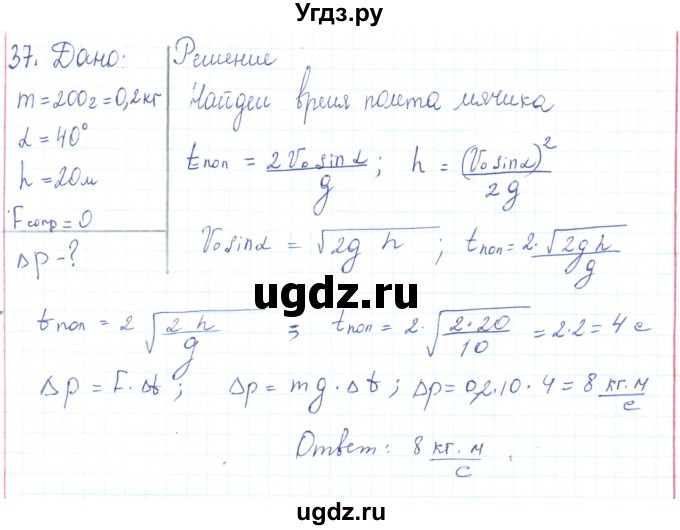 Угдз.ру
37. Дано:
m = 200г = 0,2 кг
α = 40°
h = 20 м
Fсопр = 0
Δp - ?
Решение
Найдем время полета мячика
tпол = 2V₀sinα / g ; h = (V₀sinα)² / 2g
V₀sinα = √(2g h) ; tпол = 2·√(2gh) / g
ugdz.ru
tпол = 2√(2h / g) ; tпол = 2·√(2·20 / 10) = 2·2 = 4 с
Δp = F·Δt ; Δp = mg·Δt ; Δp = 0,2·10·4 = 8 кг·м / с
Ответ: 8 кг·м / с .
ugdz.ru